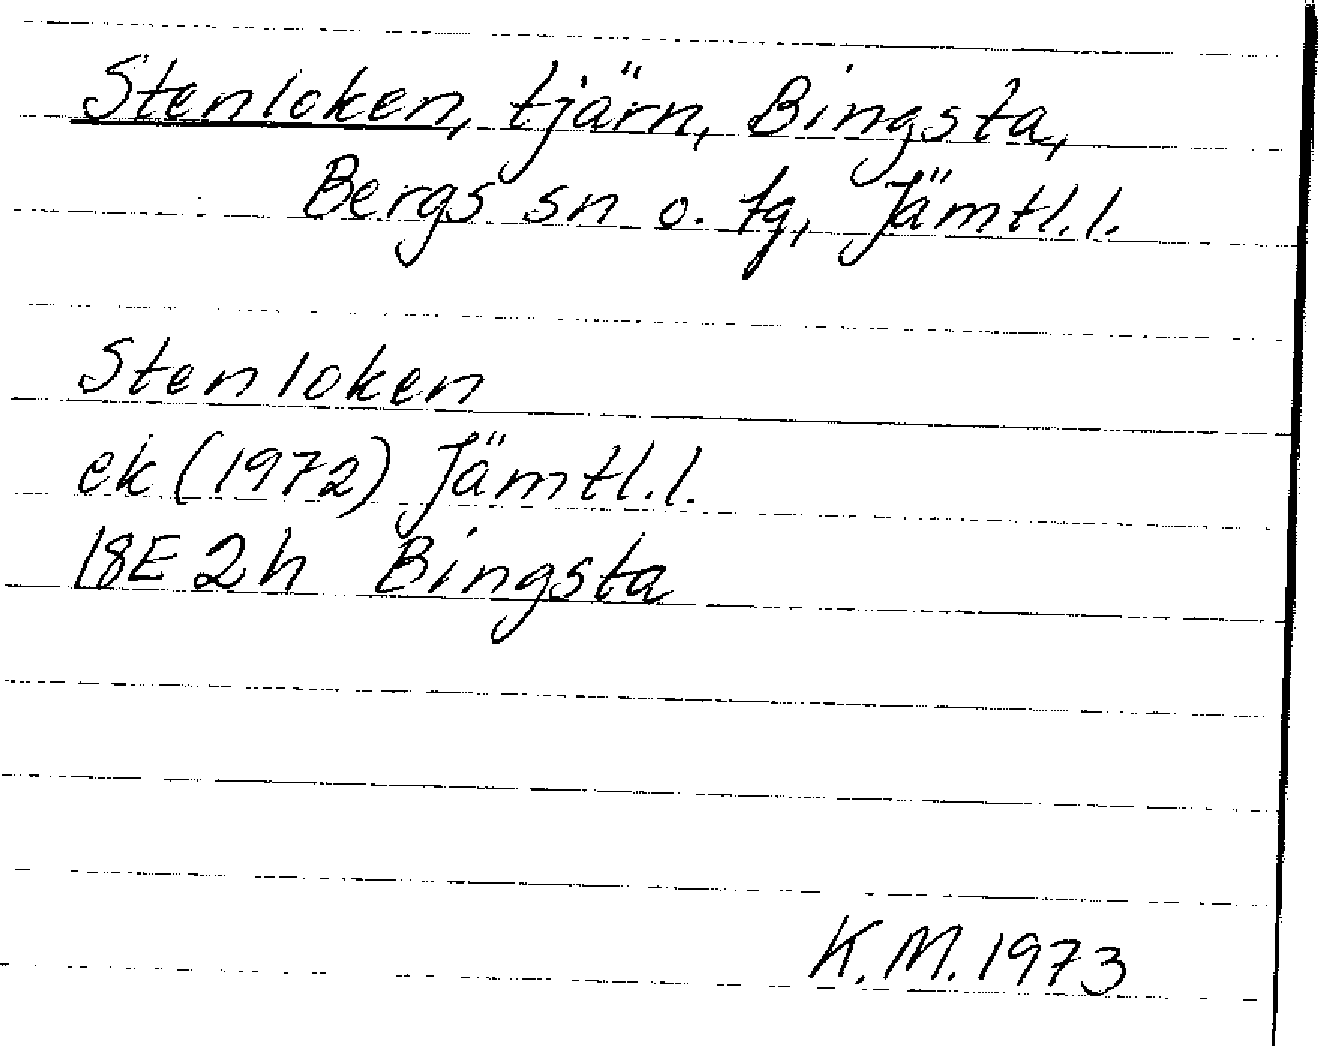 Stenloken, tjärn, Bingsta,
Bergs sn o. tg, Jämtl.l.
Stenloken
ek (1972) Jämtl.l.
18E 2h Bingsta
K.M. 1973